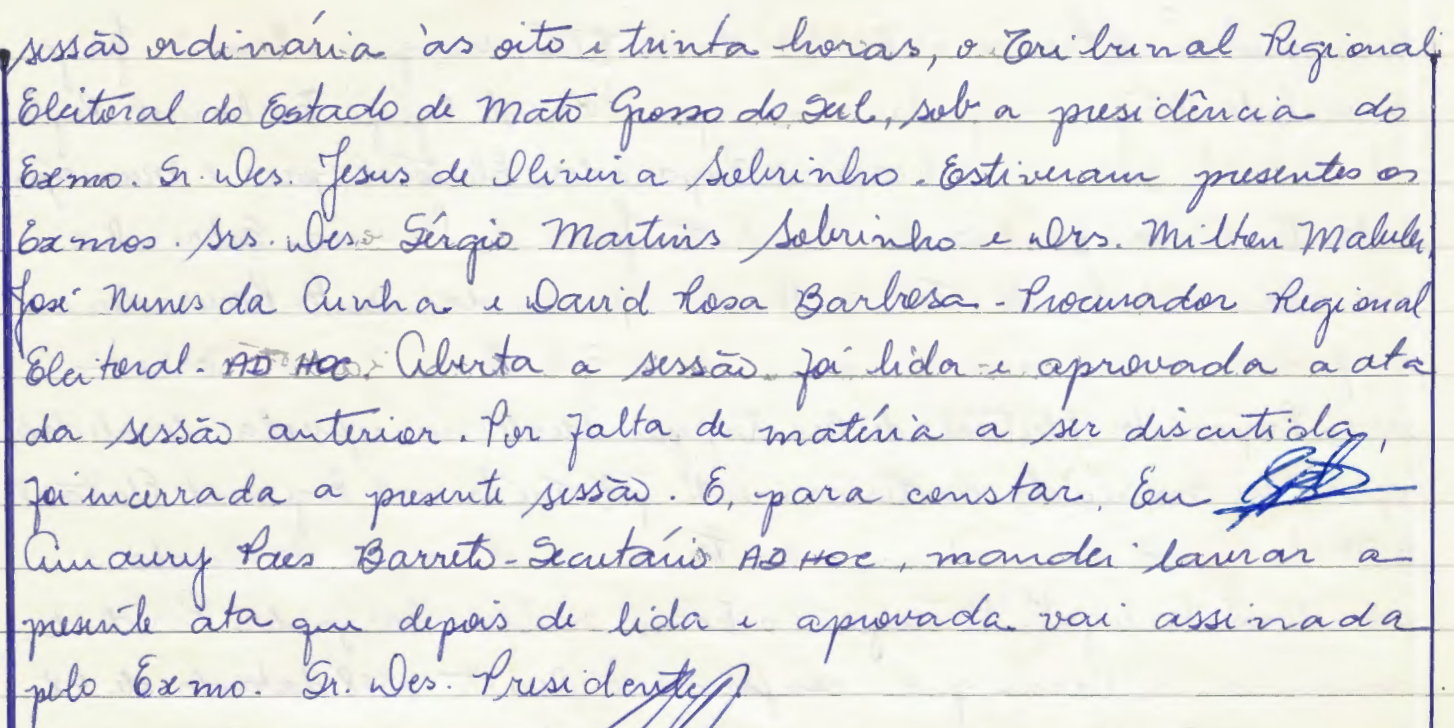 sessão ordinária às oito e trinta horas, o Tribunal Regional
Eleitoral do Estado de Mato Grosso do Sul, sob a presidência do
Exmo. Sr. Des. Jesus de Oliveira Sobrinho. Estiveram presentes os
Exmos. Srs. Des. Sérgio Martins Sobrinho e Drs. Milton Malulei,
José Nunes da Cunha e David Rosa Barbosa - Procurador Regional
Eleitoral - AD HOC. Aberta a sessão foi lida e aprovada a ata
da sessão anterior. Por falta de matéria a ser discutida,
foi incerrada a presente sessão. E, para constar, Eu
Amaury Paes Barreto - Secretário AD HOC, mandei lavrar a
presente ata que depois de lida e aprovada vai assinada
pelo Exmo. Sr. Des. Presidente